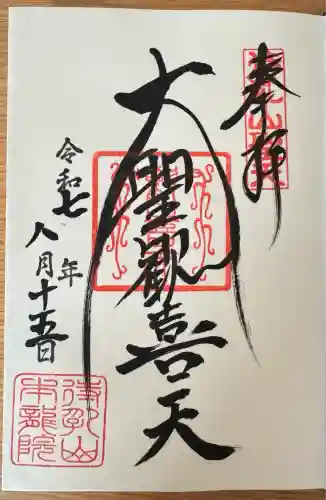 奉拝
大聖歓喜天
令和七年
八月十五日
待乳山
本龍院